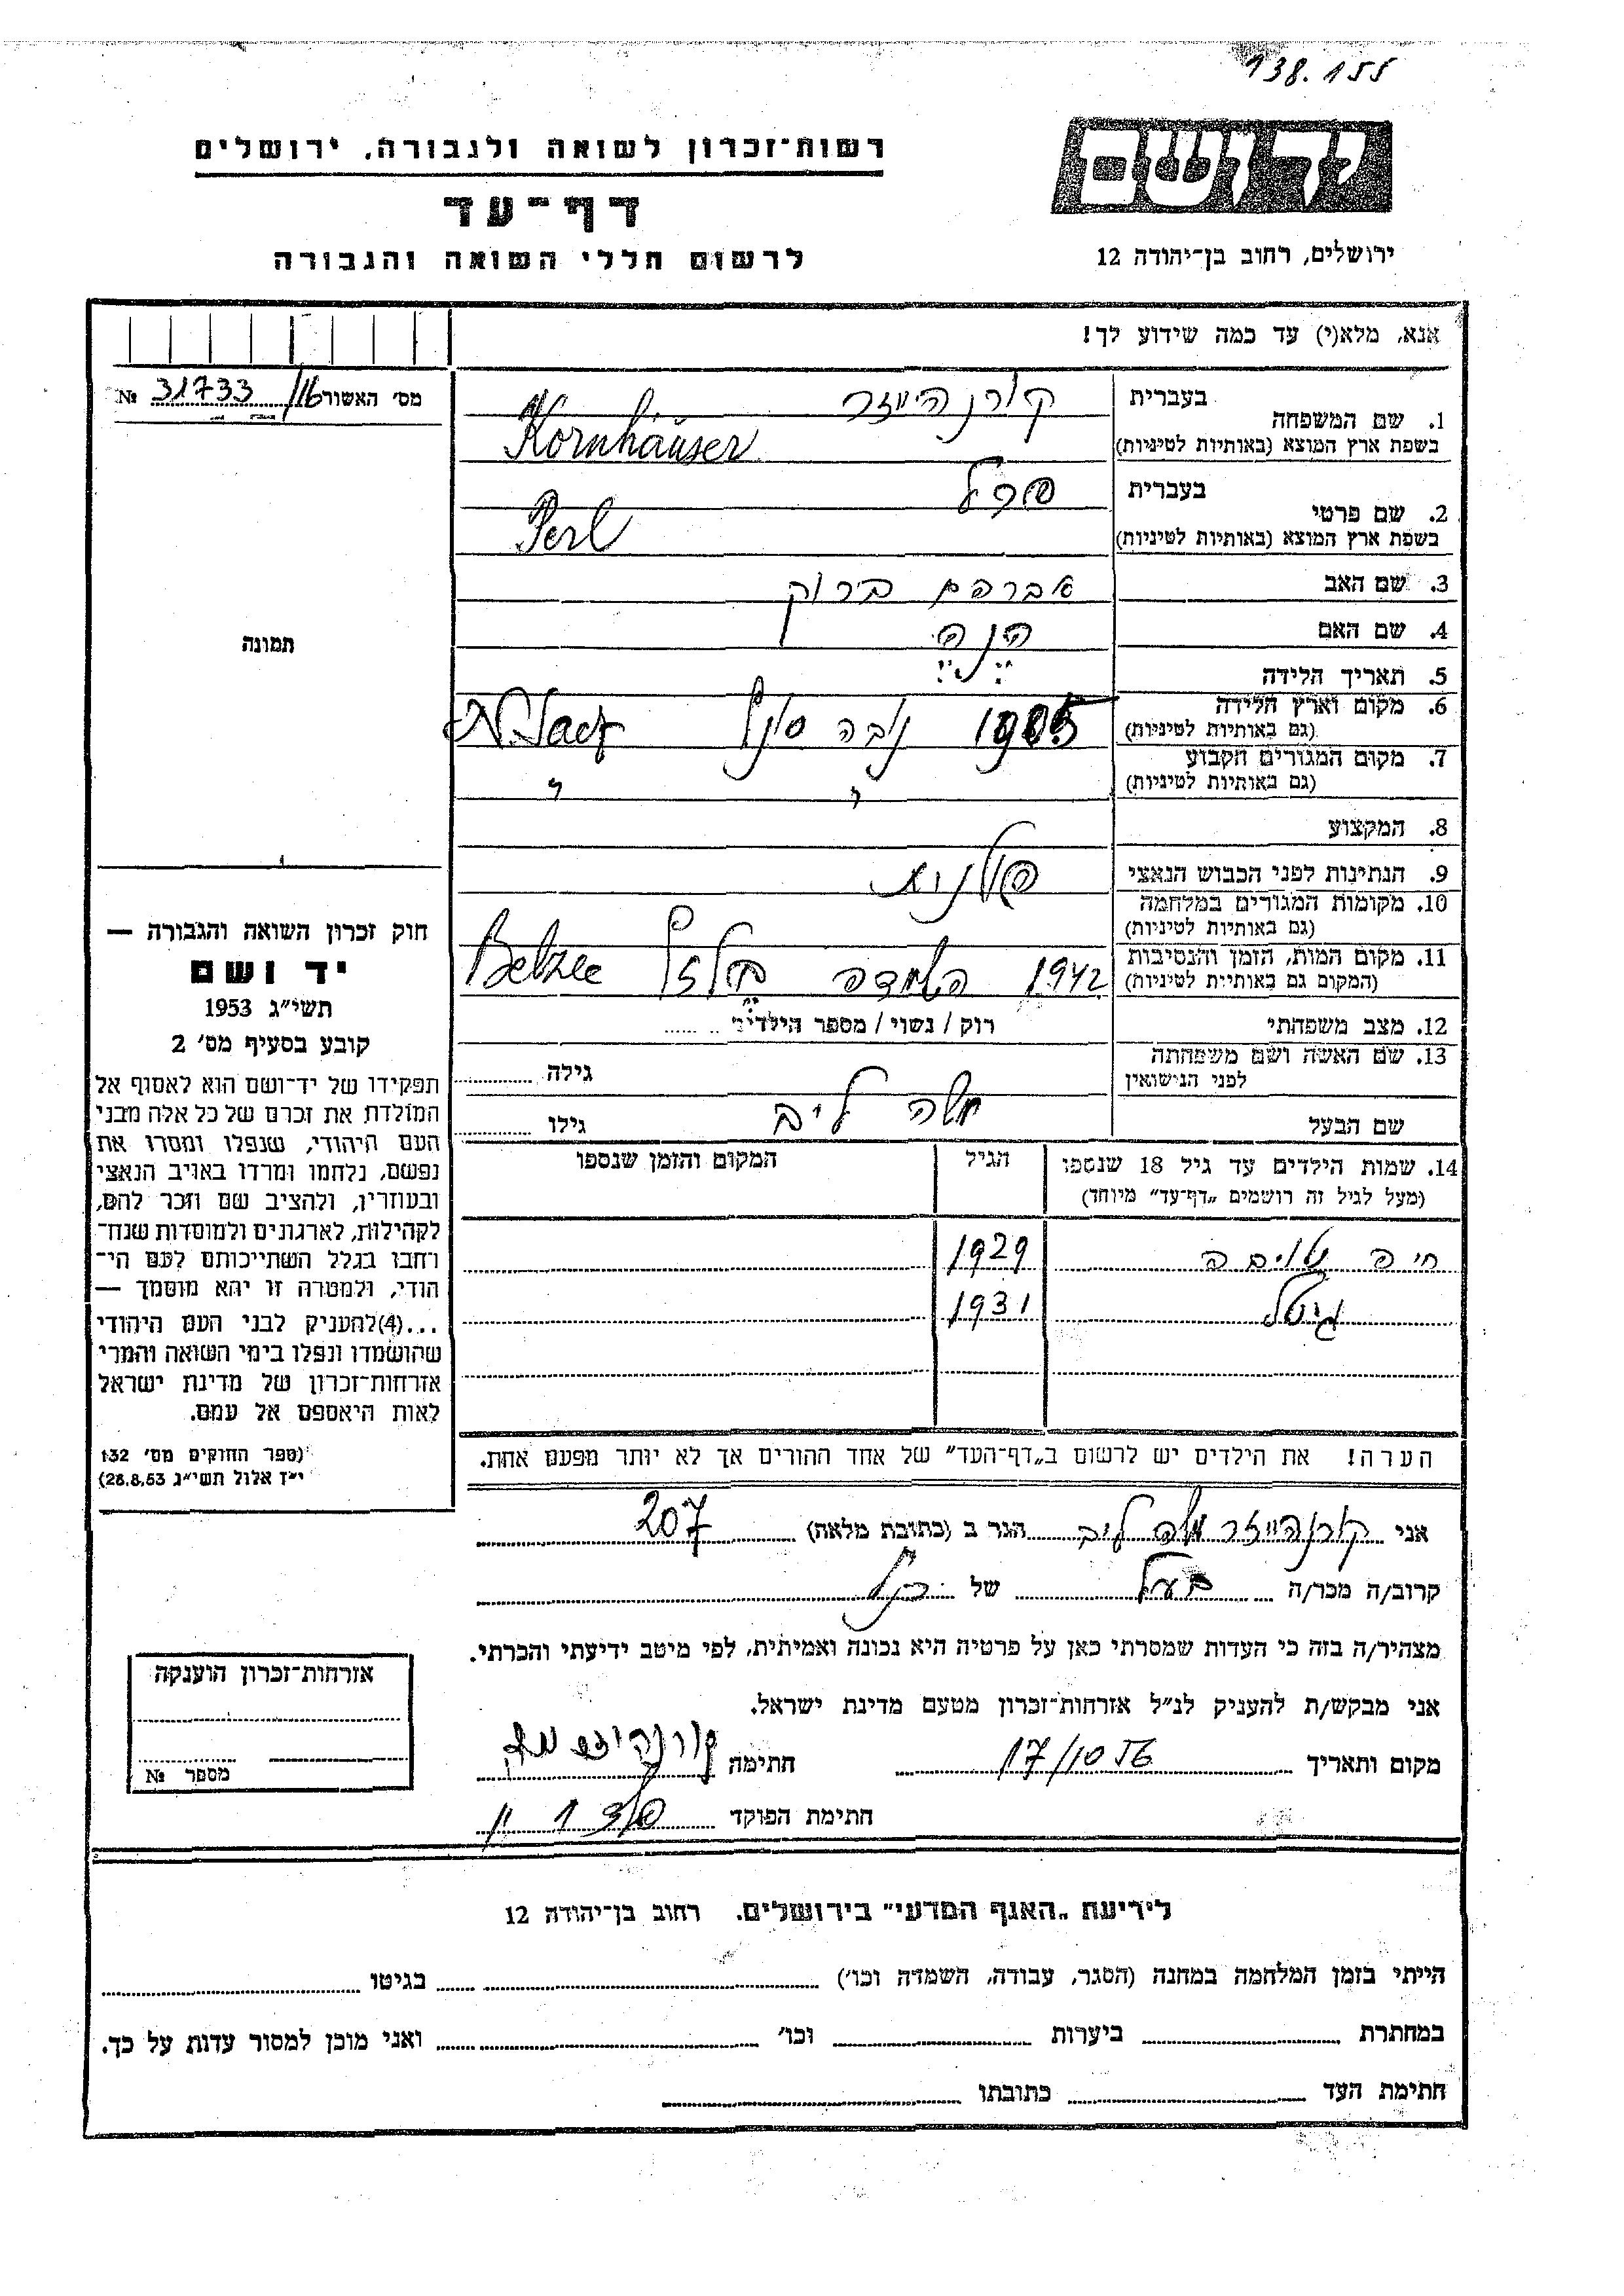 138.155
ידושם
רשות־זכרון לשואה ולגבורה, ירושלים
דף־עד
לרשום חללי השואה והגבורה
ירושלים, רחוב בן־יהודה 12
אנא, מלא(י) עד כמה שידוע לך!
מס׳ האשור 16/ 31733 №
תמונה
1. שם המשפחה
בעברית קורנהייזר
בשפת ארץ המוצא (באותיות לטיניות) Kornhäuser
2. שם פרטי
בעברית פרל
בשפת ארץ המוצא (באותיות לטיניות) Perl
3. שם האב אברהם ברוך
4. שם האם חנה
5. תאריך הלידה
6. מקום וארץ הלידה 1905
(גם באותיות לטיניות)
7. מקום המגורים הקבוע
(גם באותיות לטיניות)
8. המקצוע
9. הנתינות לפני הכבוש הנאצי פולנית
10. מקומות המגורים במלחמה
(גם באותיות לטיניות)
11. מקום המות, הזמן והנסיבות 1942 השמדה Belzec
(המקום גם באותיות לטיניות)
12. מצב משפחתי רוק / נשוי / מספר הילדים
13. שם האשה ושם משפחתה
לפני הנישואין
גילה
שם הבעל משה לייב גילו
14. שמות הילדים עד גיל 18 שנספו הגיל המקום והזמן שנספו
(מעל לגיל זה רושמים „דף־עד״ מיוחד)
חיה 1929
גיטל 1931
הערה! את הילדים יש לרשום ב„דף־העד״ של אחד ההורים אך לא יותר מפעם אחת.
חוק זכרון השואה והגבורה —
יד ושם
תשי״ג 1953
קובע בסעיף מס׳ 2
תפקידו של יד־ושם הוא לאסוף אל
המולדת את זכרם של כל אלה מבני
העם היהודי, שנפלו ומסרו את
נפשם, נלחמו ומרדו באויב הנאצי
ובעוזריו, ולהציב שם וזכר להם,
לקהילות, לארגונים ולמוסדות שנח־
רחבו בגלל השתייכותם לעם הי־
הודי, ולמטרה זו יהא מוסמך —
...(4)להעניק לבני העם היהודי
שהושמדו ונפלו בימי השואה והמרי
אזרחות־זכרון של מדינת ישראל
לאות היאספם אל עמם.
(ספר החוקים מס׳ 132
י״ז אלול תשי״ג 28.8.53)
אני קורנהייזר משה לייב הגר ב (כתובת מלאה) 207
קרוב/ה מכר/ה בעל של
מצהיר/ה בזה כי העדות שמסרתי כאן על פרטיה היא נכונה ואמיתית, לפי מיטב ידיעתי והכרתי.
אני מבקש/ת להעניק לנ״ל אזרחות־זכרון מטעם מדינת ישראל.
מקום ותאריך 17/10 56 חתימה
חתימת הפוקד
אזרחות־זכרון הוענקה
מספר №
לידיעת „האגף המדעי״ בירושלים. רחוב בן־יהודה 12
הייתי בזמן המלחמה במחנה (הסגר, עבודה, השמדה וכו׳) בגיטו
במחתרת ביערות וכו׳ ואני מוכן למסור עדות על כך.
חתימת העד כתובתו